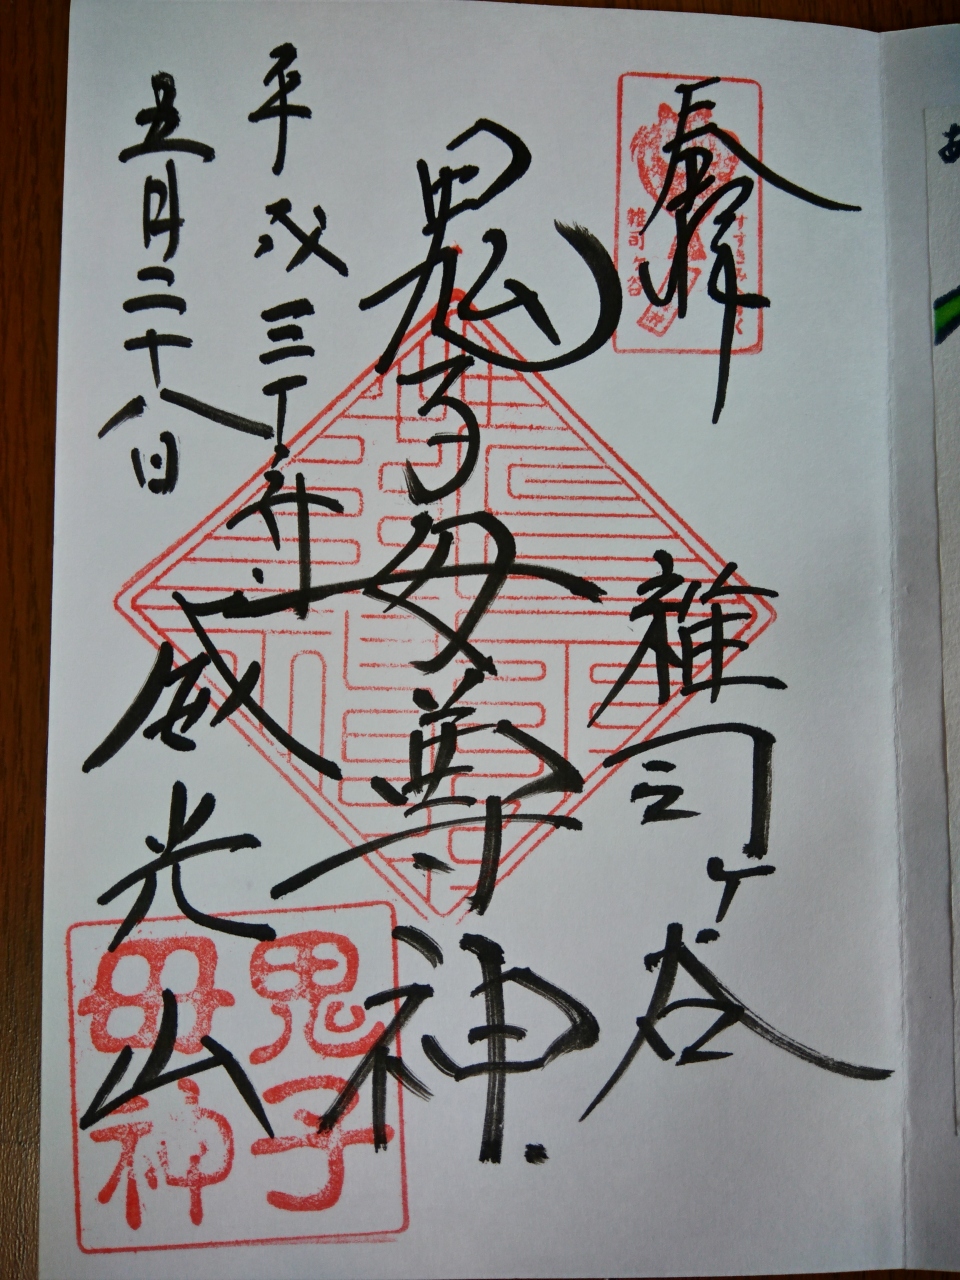 奉拝
すすきみみずく
雑司ヶ谷
雑司ヶ谷
鬼子母尊神
平成三十年
五月二十八日
威光山
鬼子
母神